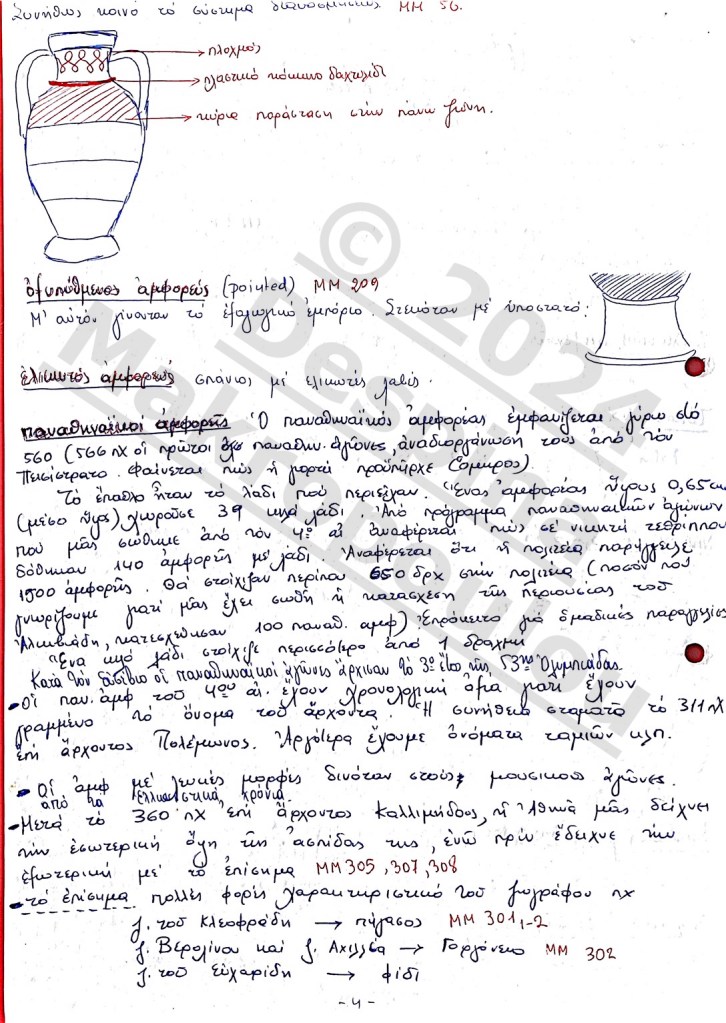 Συνήθως κοινό τό σύστημα διακοσμήσεως MM 56.
πλοχμός
πλαστικό κόκκινο δαχτυλίδι
κύρια παράσταση στήν πάνω ζώνη.
ὀξυπύθμενος ἀμφορεύς (pointed) MM 209
Μ' αὐτόν γίνονταν τό ἐξαγωγικό ἐμπόριο. Στεκόταν μέ ὑποστατό.
ἑλικωτός ἀμφορεύς σπάνιοι, μέ ελικωτές λαβές.
παναθηναϊκοί ἀμφορῆς Ὁ παναθηναϊκός ἀμφορέας ἐμφανίζεται γύρω στό
560 (566 πΧ οἱ πρῶτοι παναθην. ἀγῶνες, ἀναδιοργάνωσή τους ἀπό τόν
Πεισίστρατο. Φαίνεται πώς ἡ γιορτή προϋπῆρχε
Τό ἔπαθλο ἦταν τό λάδι πού περιεῖχαν. Ἕνας ἀμφορέας ὕψους 0,65 cm
(μέσο ὕψος) χωροῦσε 39 κιλά λάδι. Ἀπό πρόγραμμα παναθηναϊκῶν ἀγώνων
πού μᾶς σώθηκε ἀπό τόν 4ο αἰ ἀναφέρεται πώς σέ νικητή τεθρίππου
δόθηκαν 140 ἀμφορῆς μέ λάδι. Ἀναφέρεται ὅτι ἡ πολιτεία παρήγγειλε
1500 ἀμφορῆς. Θά στοίχιζαν περίπου 650 δρχ στήν πολιτεία (ποσόν πού
γνωρίζουμε γιατί μᾶς ἔχει σωθῆ ἡ κατάσχεση τῆς περιουσίας τοῦ
Ἀλκιβιάδη, κατεσχέθησαν 100 παναθ. αμφ) Ἐπρόκειτο γιά ὁμαδικές παραγγελίες
Ἕνα κιλό λάδι στοίχιζε περισσότερο ἀπό 1 δραχμή
Κατά τόν οἱ παναθηναϊκοί ἀγῶνες ἄρχισαν τό 3ο ἔτος τῆς 53ης Ὀλυμπιάδας.
- Οἱ παν. ἀμφ τοῦ 4ου αἰ. ἔχουν χρονολογική ἀξία γιατί ἔχουν
γραμμένο τό ὄνομα τοῦ ἄρχοντα. Ἡ συνήθεια σταματᾶ τό 311 πΧ
ἐπί ἄρχοντος Πολέμωνος. Ἀργότερα ἔχουμε ὀνόματα ταμιῶν κλπ.
- Οἱ ἀμφ μέ λευκές μορφές δινόταν στούς μουσικούς ἀγῶνες.
ἀπό τά ἑλληνιστικά χρόνια.
- Μετά τό 360 πΧ ἐπί ἄρχοντος Καλλιμήδους, ἡ Ἀθηνᾶ μᾶς δείχνει
τήν ἐσωτερική ὄψη τῆς ἀσπίδας της, ἐνῶ πρίν ἔδειχνε τήν
ἐξωτερική μέ τό ἐπίσημα MM 305, 307, 308
- τό ἐπίσημα πολλές φορές χαρακτηριστικό τοῦ ζωγράφου πχ
ζ. τοῦ Κλεοφράδη → πήγασος MM 301,1-2
ζ. Βερολίνου καί ζ. Ἀχιλλέα → Γοργόνειο MM 302
ζ. τοῦ Εὐχαρίδη → φίδι
- 4 -
© 2024
Despina
Makropoulou